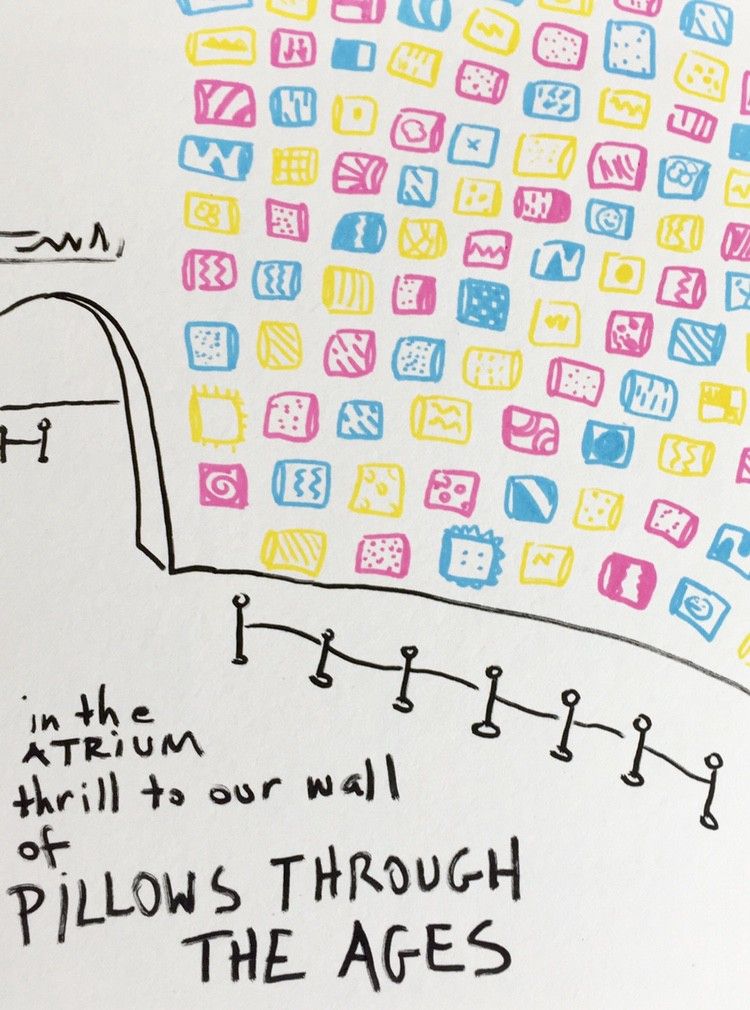 in the
ATRIUM
thrill to our wall
of
PiLLOWS THROUGH
THE AGES